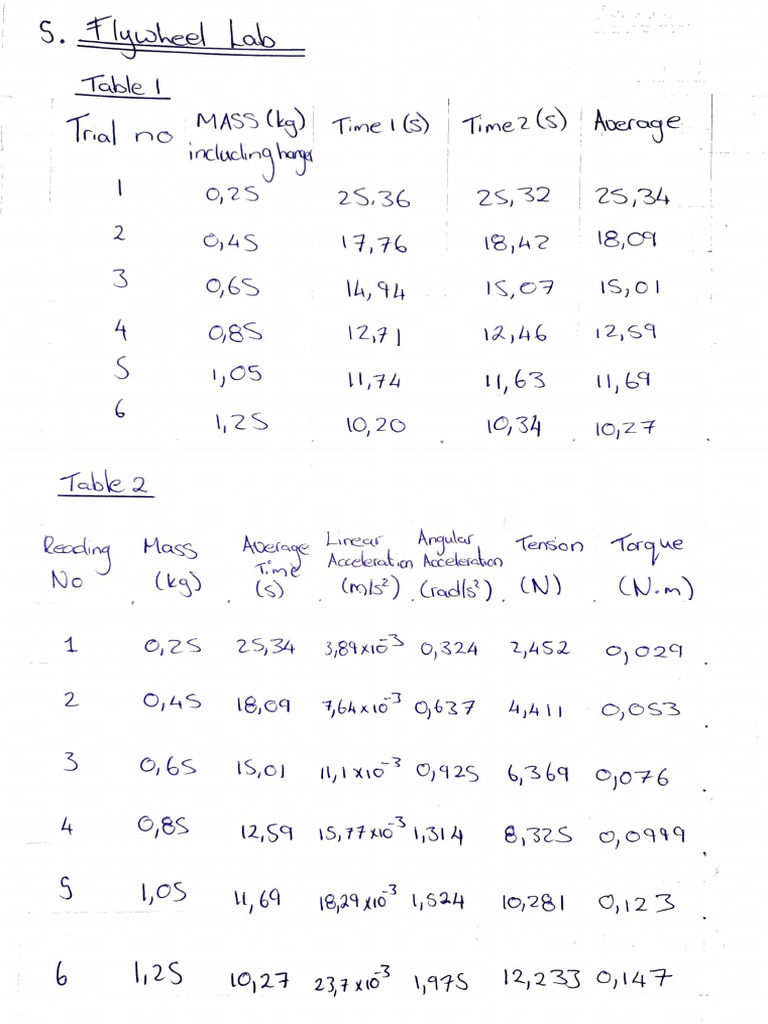 5. Flywheel Lab
Table 1
Trial no MASS (kg) including hanger Time 1 (s) Time 2 (s) Average
1 0,25 25.36 25,32 25,34
2 0,45 17,76 18,42 18,09
3 0,65 14,94 15,07 15,01
4 0,85 12,71 12,46 12,59
5 1,05 11,74 11,63 11,69
6 1,25 10,20 10,34 10,27
Table 2
Reading No Mass (kg) Average Time (s) Linear Acceleration (m/s²) Angular Acceleration (rad/s²) Tension (N) Torque (N.m)
1 0,25 25,34 3,89×10⁻³ 0,324 2,452 0,029
2 0,45 18,09 7,64×10⁻³ 0,637 4,411 0,053
3 0,65 15,01 11,1×10⁻³ 0,925 6,369 0,076
4 0,85 12,59 15,77×10⁻³ 1,314 8,325 0,0999
5 1,05 11,69 18,29×10⁻³ 1,524 10,281 0,123
6 1,25 10,27 23,7×10⁻³ 1,975 12,233 0,147